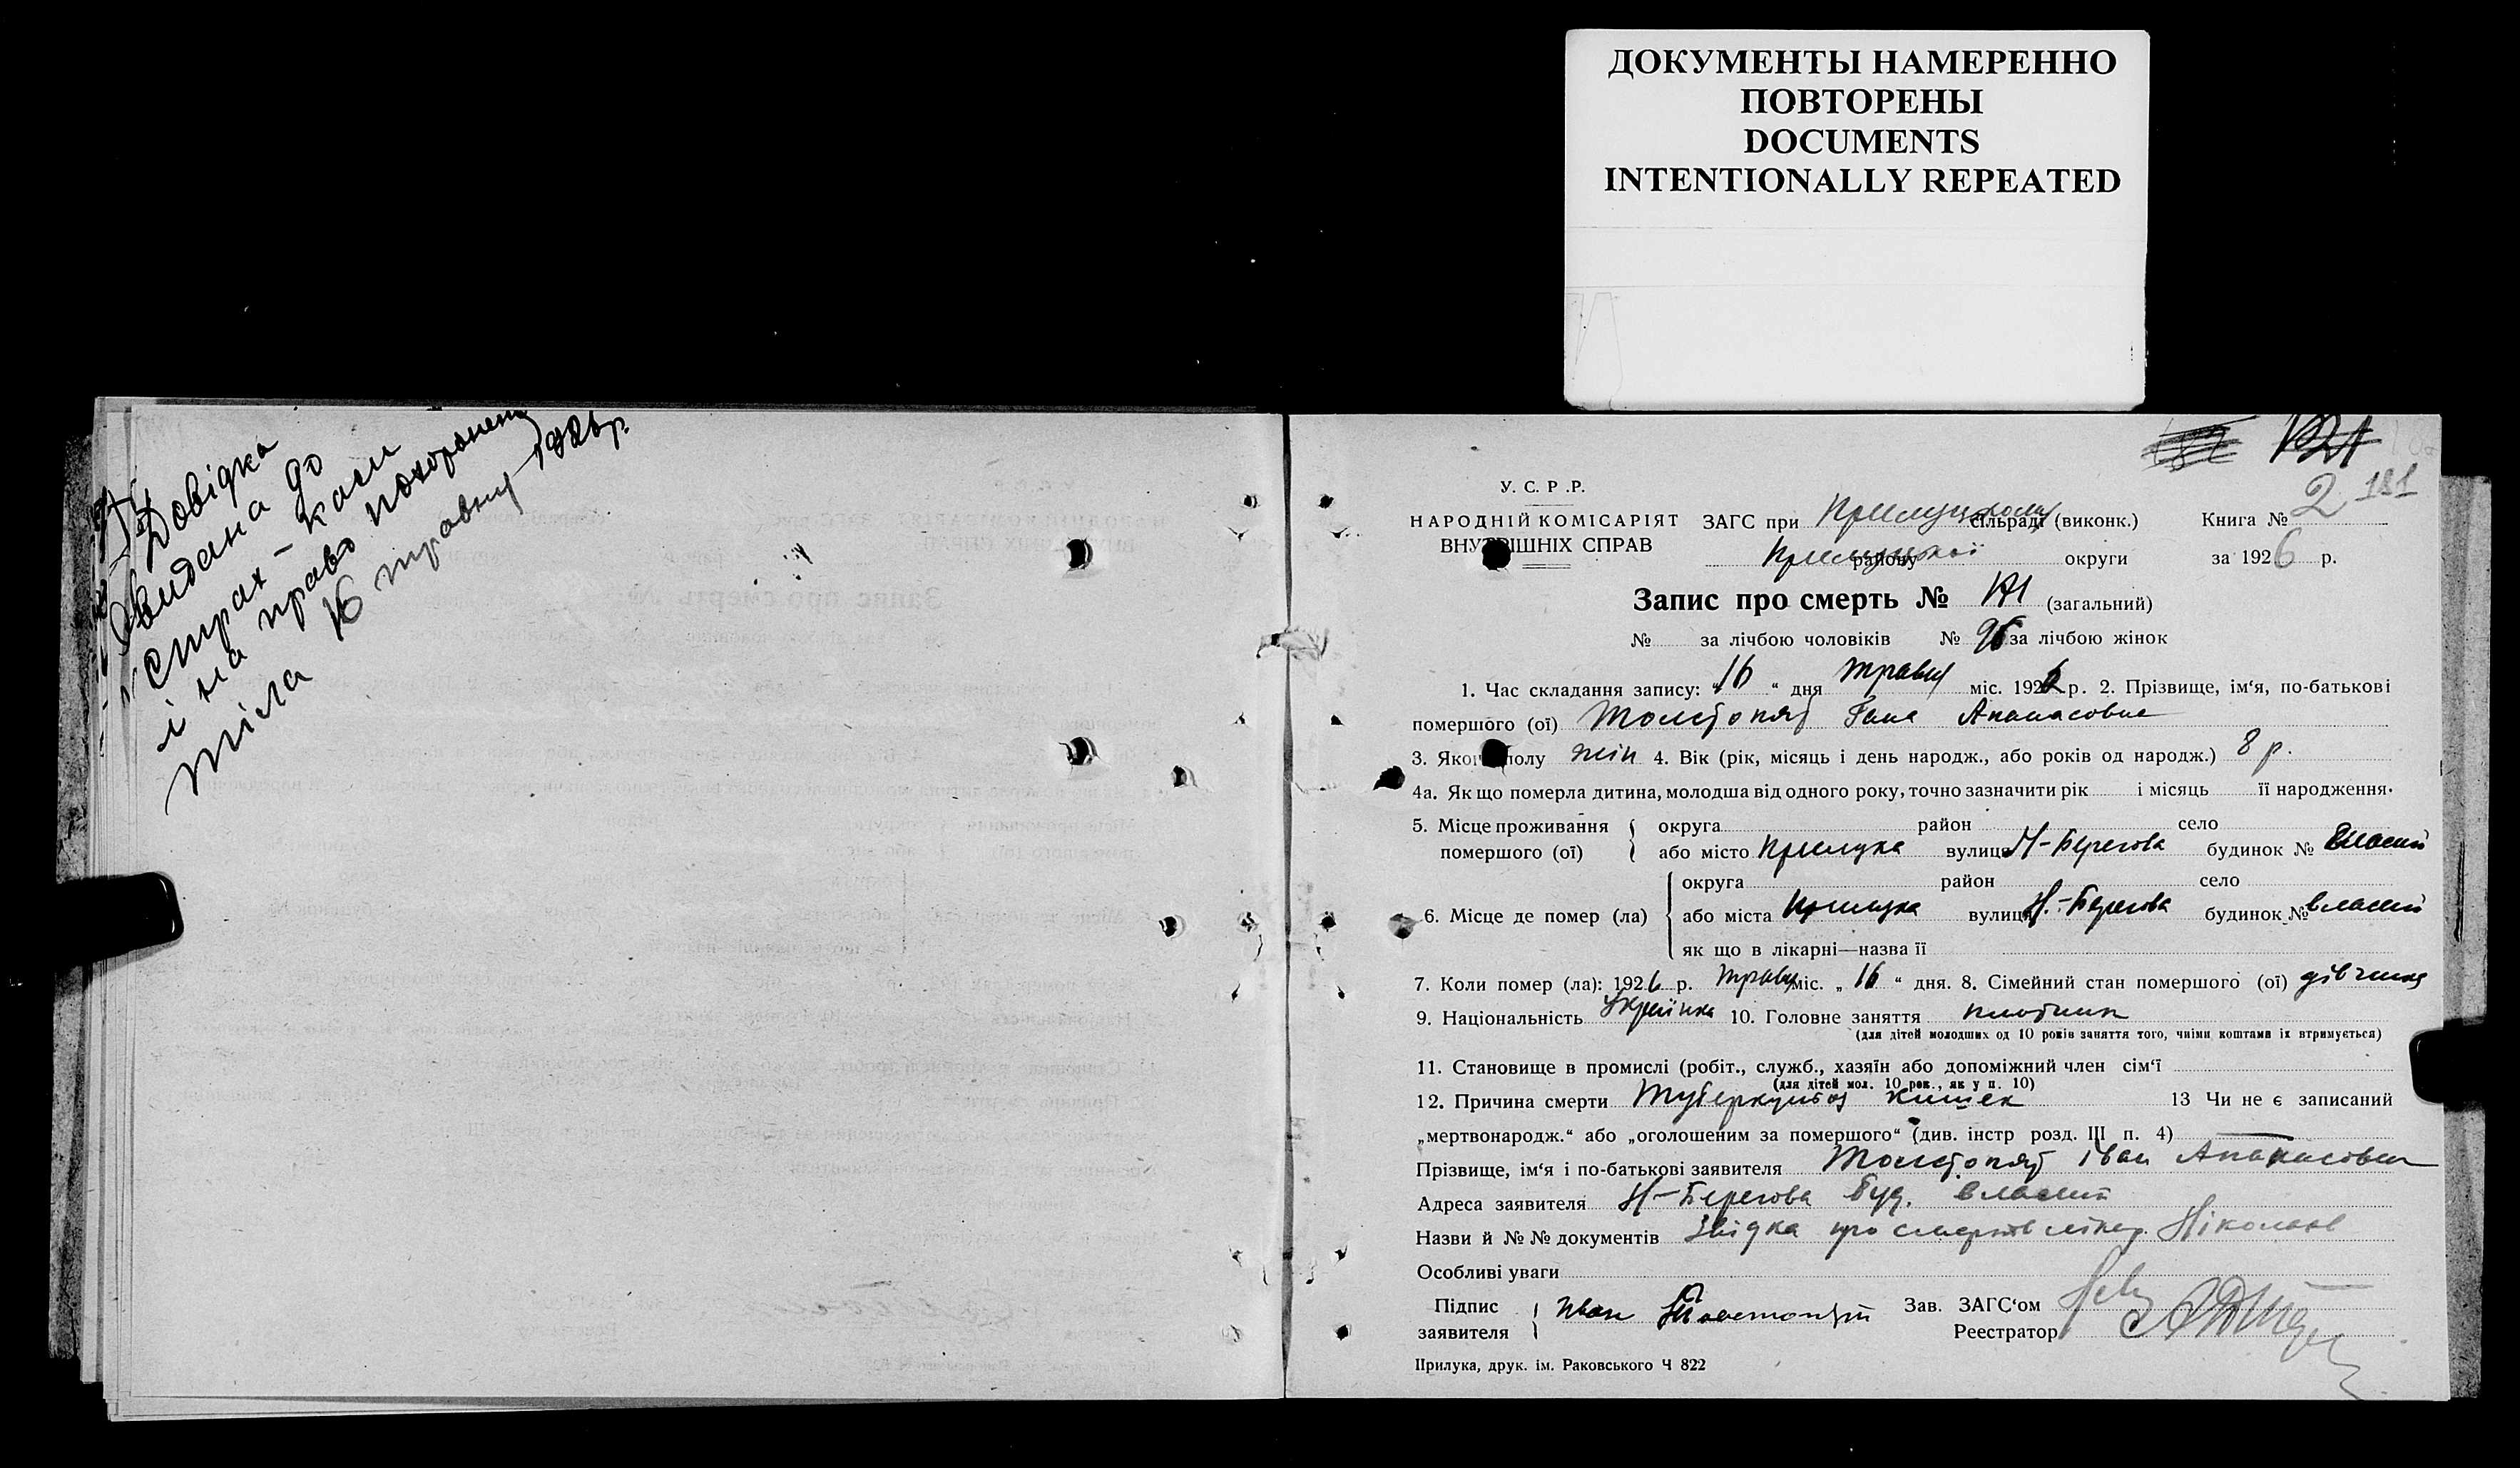 ДОКУМЕНТЫ НАМЕРЕННО
ПОВТОРЕНЫ
DOCUMENTS
INTENTIONALLY REPEATED
Довідка
видана до
страх-каси
і на право похоронення
тіла 16 травня 1926 р.
181
У. С. Р .Р.
НАРОДНІЙ КОМІСАРІЯТ
ВНУТРІШНІХ СПРАВ
ЗАГС при Прилуцькому сільраді (виконк.)
Книга № 2
Прилуцької району округи
за 1926 р.
Запис про смерть № (загальний)
№ за лічбою чоловіків № за лічбою жінок
1. Час складання запису: „16“ дня травня міс. 1926 р. 2. Прізвище, ім‘я, по-батькові
помершого (ої) Толстопят Гана Апанасовна
3. Якого полу жін 4. Вік (рік, місяць і день народж., або років од народж.) 8 р.
4а. Як що померла дитина, молодша від одного року, точно зазначити рік і місяць її народження.
5. Місце проживання помершого (ої) округа район село
або місто Прилука вулиця Н-Берегова будинок № власний
6. Місце де помер (ла) округа район село
або міста Прилука вулиця Н.-Берегова будинок № власний
як що в лікарні—назва її
7. Коли помер (ла): 1926 р. травня міс. „16“ дня. 8. Сімейний стан помершого (ої) дівчина
9. Національність Українка 10. Головне заняття плотник
(для дітей молодших од 10 років заняття того, чиїми коштами їх втримується)
11. Становище в промислі (робіт., служб., хазяїн або допоміжний член сім‘ї
(для дітей мол. 10 рок., як у п. 10)
12. Причина смерти Туберкульоз кишек 13 Чи не є записаний
„мертвонародж.“ або „оголошеним за помершого“ (див. інстр розд. III п. 4) —
Прізвище, ім‘я і по-батькові заявителя Толстопят Іван Апанасович
Адреса заявителя Н-Берегова буд. власний
Назви й №№ документів Звідка про смерть лікар. Ніколаєв
Особливі уваги
Підпис заявителя Иван Толстопят
Зав. ЗАГС‘ом
Реестратор
Прилука, друк. ім. Раковського Ч 822